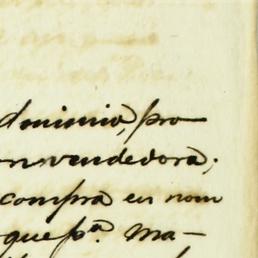 dminio, pro
n vendedora;
compra en nom
que pª. Ma-